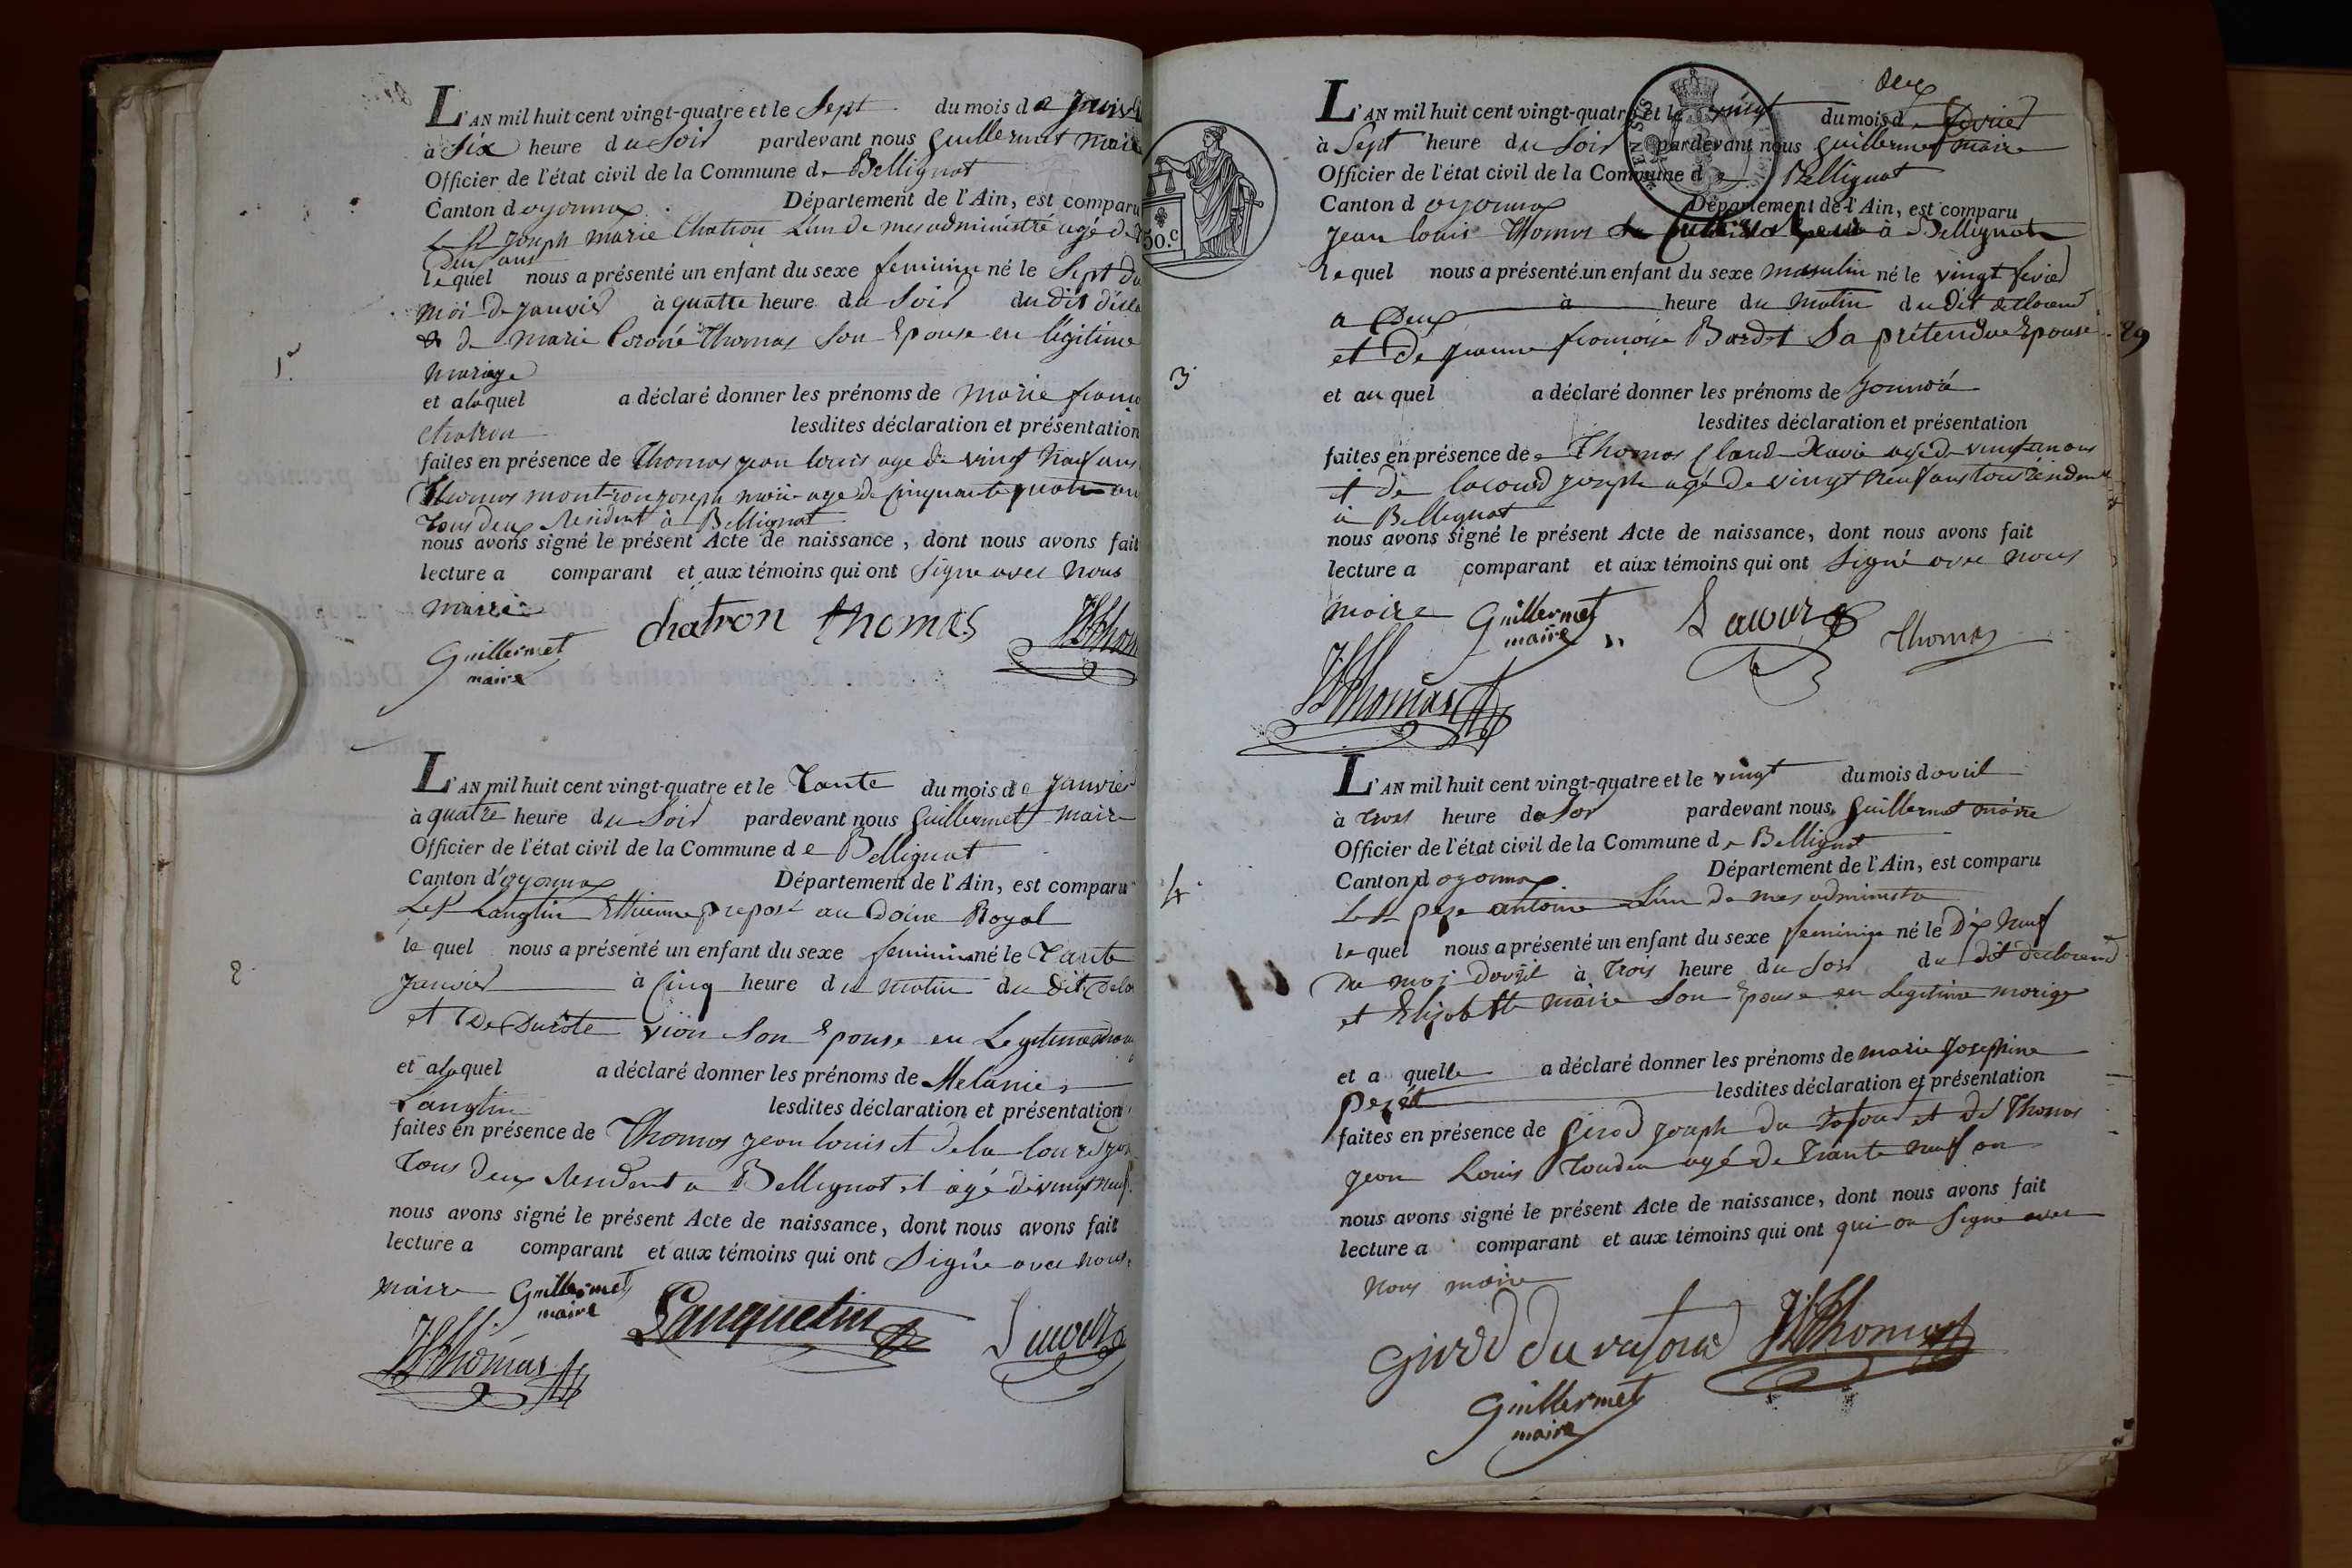 L'AN mil huit cent vingt-quatre et le Sept du mois de Janvier
à Six heure du Soir pardevant nous Guillermet maire
Officier de l'état civil de la Commune de Bellignat
Canton d'oyonnax Département de l'Ain, est comparu
Le Sr Joseph marie Chatron L'un de mes administré agé de
Deux ans
lequel nous a présenté un enfant du sexe feminin né le Sept du
moi de Janvier à quatre heure du Soir du dit décla
de marie Thomas Son Epouse en légitime
mariage
et a laquel a déclaré donner les prénoms de marie
Chatron lesdites déclaration et présentation
faites en présence de Thomas jean louis age de vingt Neuf ans
Thomas joseph marie age de Cinquante quatre an
tous deux Resident à Bellignat
nous avons signé le présent Acte de naissance, dont nous avons fait
lecture a comparant et aux témoins qui ont Signe avec Nous
maire
chatron thomas JLThom
Guillermet
maire
1r
L'AN mil huit cent vingt-quatre et le Tante du mois de Janvier
à quatre heure du Soir pardevant nous Guillermet maire
Officier de l'état civil de la Commune de Bellignat
Canton d'oyonnax Département de l'Ain, est comparu
Le Sr Langtin Ethienne preposé au Doine Royal
le quel nous a présenté un enfant du sexe feminin né le Tante
Janvier à Cinq heure du matin du dit Decla
et De viön Son Epouse en Legitime
et a laquel a déclaré donner les prénoms de Melanie
Langtin lesdites déclaration et présentation
faites en présence de Thomas jean louis et de la
tous deux Resident a Bellignat et agé de vingt neuf
nous avons signé le présent Acte de naissance, dont nous avons fait
lecture a comparant et aux témoins qui ont Signé avec nous
maire Guillermet
maire
JLThomas Lanquetin Lacour
2
Deux
L'AN mil huit cent vingt-quatre et le vingt du mois de fevrier
à Sept heure du Soir pardevant nous Guillermet maire
Officier de l'état civil de la Commune de Bellignat
Canton d oyonnax Département de l'Ain, est comparu
jean louis Thomas Cultivateur à Bellignat
50.c
lequel nous a présenté un enfant du sexe masculin né le vingt fevrier
a Deux à heure du matin du Dit declarend
et De jeanne françoise Bardet Sa pretendue Epouse
29
3
et au quel a déclaré donner les prénoms de
lesdites déclaration et présentation
faites en présence de Thomas Claud Xavie agé de vingt ans
et de Lacourd joseph agé de vingt neuf ans tous résident
à Bellignat
nous avons signé le présent Acte de naissance, dont nous avons fait
lecture a comparant et aux témoins qui ont Signé avec nous
maire Guillermet
maire Lacour Thomas
JLThomas
L'AN mil huit cent vingt-quatre et le vingt du mois d avril
à trois heure du Soir pardevant nous Guillermet maire
Officier de l'état civil de la Commune de Bellignat
Canton d oyonnax Département de l'Ain, est comparu
4
Le Sr antoine L'un de mes administre
lequel nous a présenté un enfant du sexe feminin né le Dix Neuf
Du moi D'avril à Trois heure du Soir du dit declarend
et Elizabette maire Son Epouse en Legitime mariage
et a quelle a déclaré donner les prénoms de marie Josephine
lesdites déclaration et présentation
faites en présence de Girod joseph du et de Thomas
jean Louis agé de Trante neuf an
nous avons signé le présent Acte de naissance, dont nous avons fait
lecture a comparant et aux témoins qui ont qui on Signe avec
Nous maire
Girod du JLThomas
Guillermet
maire